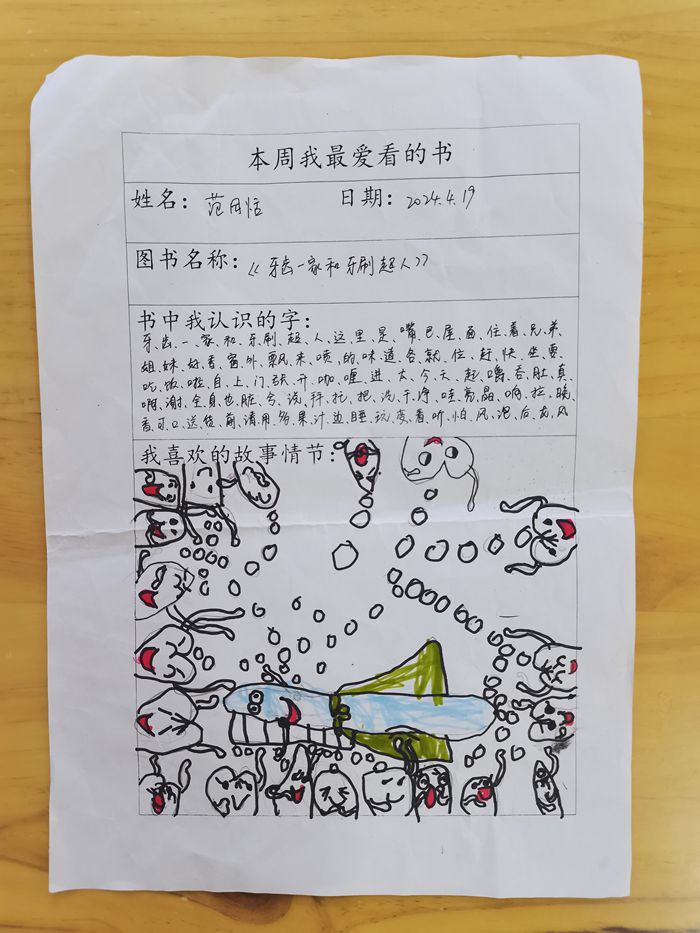 本周我最爱看的书
姓名：范用恬 日期：2024.4.19
图书名称：《牙齿一家和牙刷超人》
书中我认识的字：
牙、齿、一、家、和、牙、刷、超、人、这、里、是、嘴、巴、屋、面、住、着、兄、弟、
姐、妹、好、香、窗、外、飘、来、喷、的、味、道、各、就、位、赶、快、坐、要、
吃、饭、啦、自、上、门、张、开、咖、喱、进、大、今、天、起、嚼、吞、肚、真、
啊、谢、全、身、也、脏、兮、洗、拜、托、把、洗、干、净、哇、亮、晶、响、拉、晚、
香、可、口、送、给、前、清、用、的、果、汁、边、睡、玩、变、看、听、怕、风、泡、后、龙、风
我喜欢的故事情节：